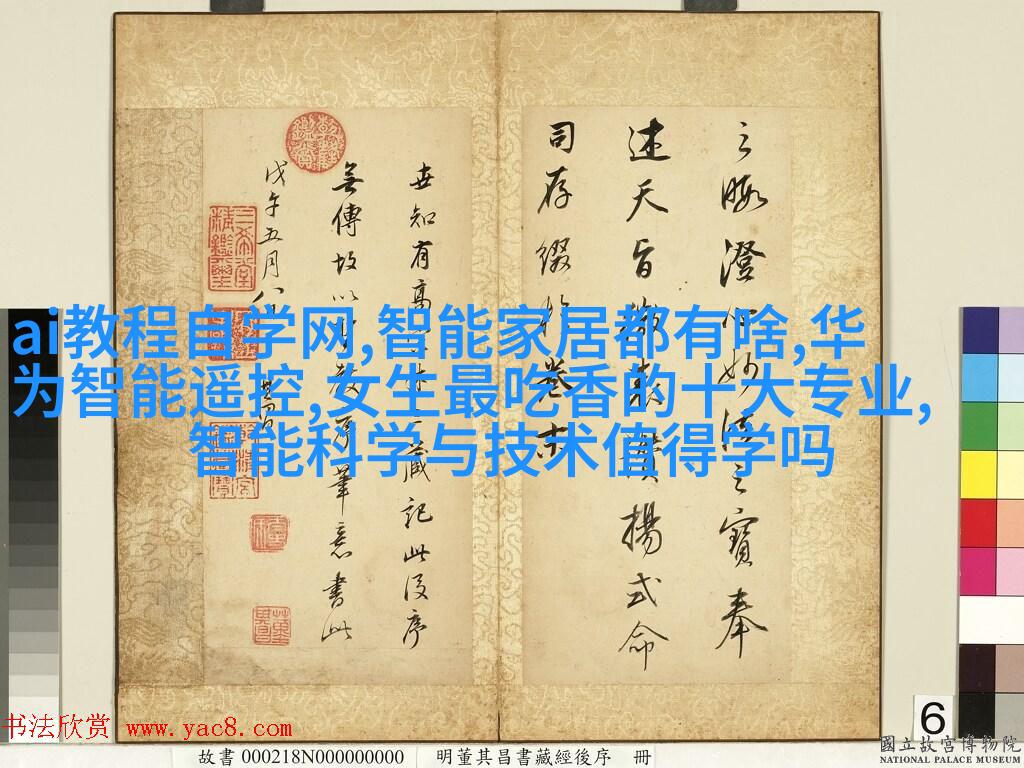 ai教程自学网,智能家居都有啥,华
为智能遥控,女生最吃香的十大专业,
智能科学与技术值得学吗
之暇澄心妙之寶奉
述天旨揚式命
司存綴於卷末
世知有高藏記此後序
無傳故以筆意書此
戊午五月八
三希堂精鑑璽
书法欣赏 www.yac8.com
故書 000218N000000000 明董其昌書藏經後序 冊
6
國立故宮博物院
NATIONAL PALACE MUSEUM